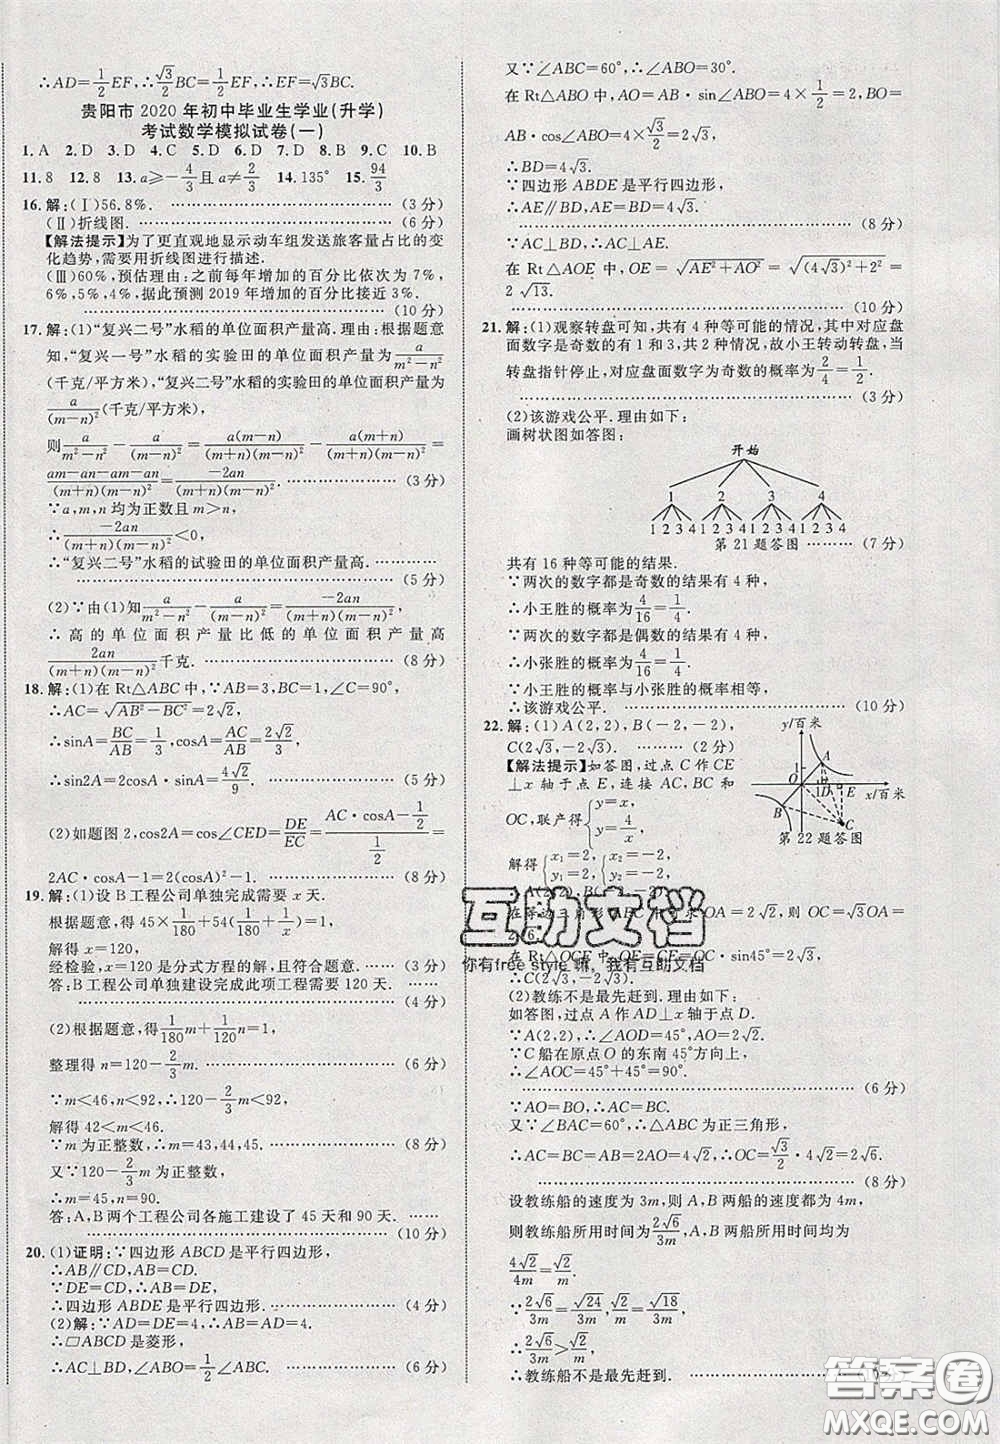 ∴AD=1/2EF,∴√3/2BC=1/2EF,∴EF=√3BC.
贵阳市 2020 年初中毕业生学业(升学)
考试数学模拟试卷(一)
1. A 2. D 3. D 4. C 5. D 6. D 7. D 8. D 9. C 10. B
11. 8 12. 8 13. a≥-4/3且 a≠2/3 14. 135° 15. 94/3
16. 解:(Ⅰ)56.8%. (3 分)
(Ⅱ)折线图. (6 分)
【解法提示】为了更直观地显示动车组发送旅客量占比的变
化趋势,需要用折线图进行描述.
(Ⅲ)60%,预估理由:之前每年增加的百分比依次为 7%,
6%,5%,4%,据此预测 2019 年增加的百分比接近 3%.
(10 分)
17. 解:(1)“复兴二号”水稻的单位面积产量高.理由:根据题意
知,“复兴一号”水稻的实验田的单位面积产量为a/(m²-n²)
(千克/平方米),“复兴二号”水稻的实验田的单位面积产量为
a/(m-n)²(千克/平方米),
则a/(m²-n²)-a/(m-n)²=a(m-n)/((m+n)(m-n)²)-a(m+n)/((m+n)(m-n)²)=
(am-an-am-an)/((m+n)(m-n)²)=-2an/((m+n)(m-n)²). (3 分)
∵a,m,n 均为正数且 m>n,
∴-2an/((m+n)(m-n)²)<0,
∴“复兴二号”水稻的试验田的单位面积产量高.
(5 分)
(2)∵由(1)知a/(m²-n²)-a/(m-n)²=-2an/((m+n)(m-n)²),
∴高的单位面积产量比低的单位面积产量高
2an/((m+n)(m-n)²)千克. (8 分)
18. 解:(1)在 Rt△ABC 中,∵AB=3,BC=1,∠C=90°,
∴AC=√(AB²-BC²)=2√2,
∴sinA=BC/AB=1/3,cosA=AC/AB=2√2/3,
∴sin2A=2cosA·sinA=4√2/9. (5 分)
(2)如题图 2,cos2A=cos∠CED=DE/EC=(AC·AC/AB-1/2)/(1/2)=
2AC·cosA-1=2(cosA)²-1. (8 分)
19. 解:(1)设 B 工程公司单独完成需要 x 天.
根据题意,得 45×1/180+54(1/180+1/x)=1,
解得 x=120,
经检验,x=120 是分式方程的解,且符合题意. (3 分)
答:B 工程公司单独建设完成此项工程需要 120 天.
(4 分)
(2)根据题意,得1/180m+1/120n=1,
整理得 n=120-2/3m. (6 分)
∵m<46,n<92,∴120-2/3m<92,
解得 42<m<46.
∵m 为正整数,∴m=43,44,45. (8 分)
又∵120-2/3m 为正整数,
∴m=45,n=90.
答:A,B 两个工程公司各施工建设了 45 天和 90 天.
(10 分)
20. (1)证明:∵四边形 ABCD 是平行四边形,
∴AB∥CD,AB=CD.
∵DE=CD,∴AB=DE,
∴四边形 ABDE 是平行四边形. (4 分)
(2)解:∵AD=DE=4,∴AD=AB=4,
∴□ABCD 是菱形,
∴AC⊥BD,∠ABO=1/2∠ABC. (6 分)
又∵∠ABC=60°,∴∠ABO=30°.
在 Rt△ABO 中,AO=AB·sin∠ABO=4×1/2=2,BO=
AB·cos∠ABO=4×√3/2=2√3,
∴BD=4√3.
∵四边形 ABDE 是平行四边形,
∴AE∥BD,AE=BD=4√3. (8 分)
∵AC⊥BD,∴AC⊥AE.
在 Rt△AOE 中,OE=√(AE²+AO²)=√((4√3)²+2²)=
2√13. (10 分)
21. 解:(1)观察转盘可知,共有 4 种等可能的情况,其中对应盘
面数字是奇数的有 1 和 3,共 2 种情况,故小王转动转盘,当
转盘指针停止,对应盘面数字为奇数的概率为2/4=1/2.
(3 分)
(2)该游戏公平.理由如下:
画树状图如答图:
开始
1 2 3 4
1 2 3 4 1 2 3 4 1 2 3 4 1 2 3 4
第 21 题答图 (7 分)
共有 16 种等可能的结果.
∵两次的数字都是奇数的结果有 4 种,
∴小王胜的概率为4/16=1/4.
∵两次的数字都是偶数的结果有 4 种,
∴小张胜的概率为4/16=1/4.
∵小王胜的概率与小张胜的概率相等,
∴该游戏公平. (10 分)
22. 解:(1)A(2,2),B(-2,-2),
C(2√3,-2√3). (2 分)
【解法提示】如答图,过点 C 作 CE
⊥x 轴于点 E,连接 AC,BC 和
OC,联产得{y=x, y=4/x,
解得{x₁=2, y₁=2, {x₂=-2, y₂=-2,
y/百米
1
A
O
1
D
E
x/百米
B
C
第 22 题答图
在等边三角形 ABC 中,可求 OA=2√2,则 OC=√3OA=
2√6.
在 Rt△OCE 中,OE=CE=OC·sin45°=2√3.
(2)教练不是最先赶到.理由如下:
如答图,过点 A 作 AD⊥x 轴于点 D.
∵A(2,2),∴∠AOD=45°,AO=2√2.
∵C 船在原点 O 的东南 45°方向上,
∴∠AOC=45°+45°=90°.
(6 分)
∵AO=BO,∴AC=BC.
又∵∠BAC=60°,∴△ABC 为正三角形,
∴AC=BC=AB=2AO=4√2,∴OC=√3/2·4√2=2√6.
(8 分)
设教练船的速度为 3m,则 A,B 两船的速度都为 4m,
则教练船所用时间为2√6/3m,A,B 两船所用时间均为
4√2/4m=√2/m.
∵2√6/3m=√24/3m,√2/m=√18/3m,
∴2√6/3m>√2/m,
∴教练船不是最先赶到.
互助文档
你有free style 嘛，我有互助文档
答案圈
MXQE.COM